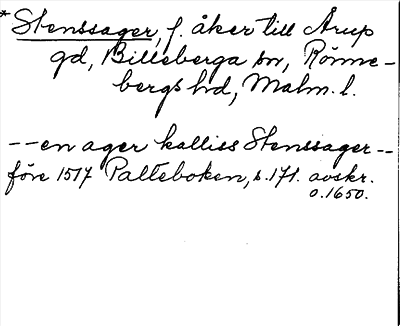 * Stenssager, f. åker till Årup
gd, Billeberga sn, Rönne-
bergs hd, Malm. l.
--en ager kalliss Stenssager--
före 1517 Palteboken, s.171. avskr.
o.1650.